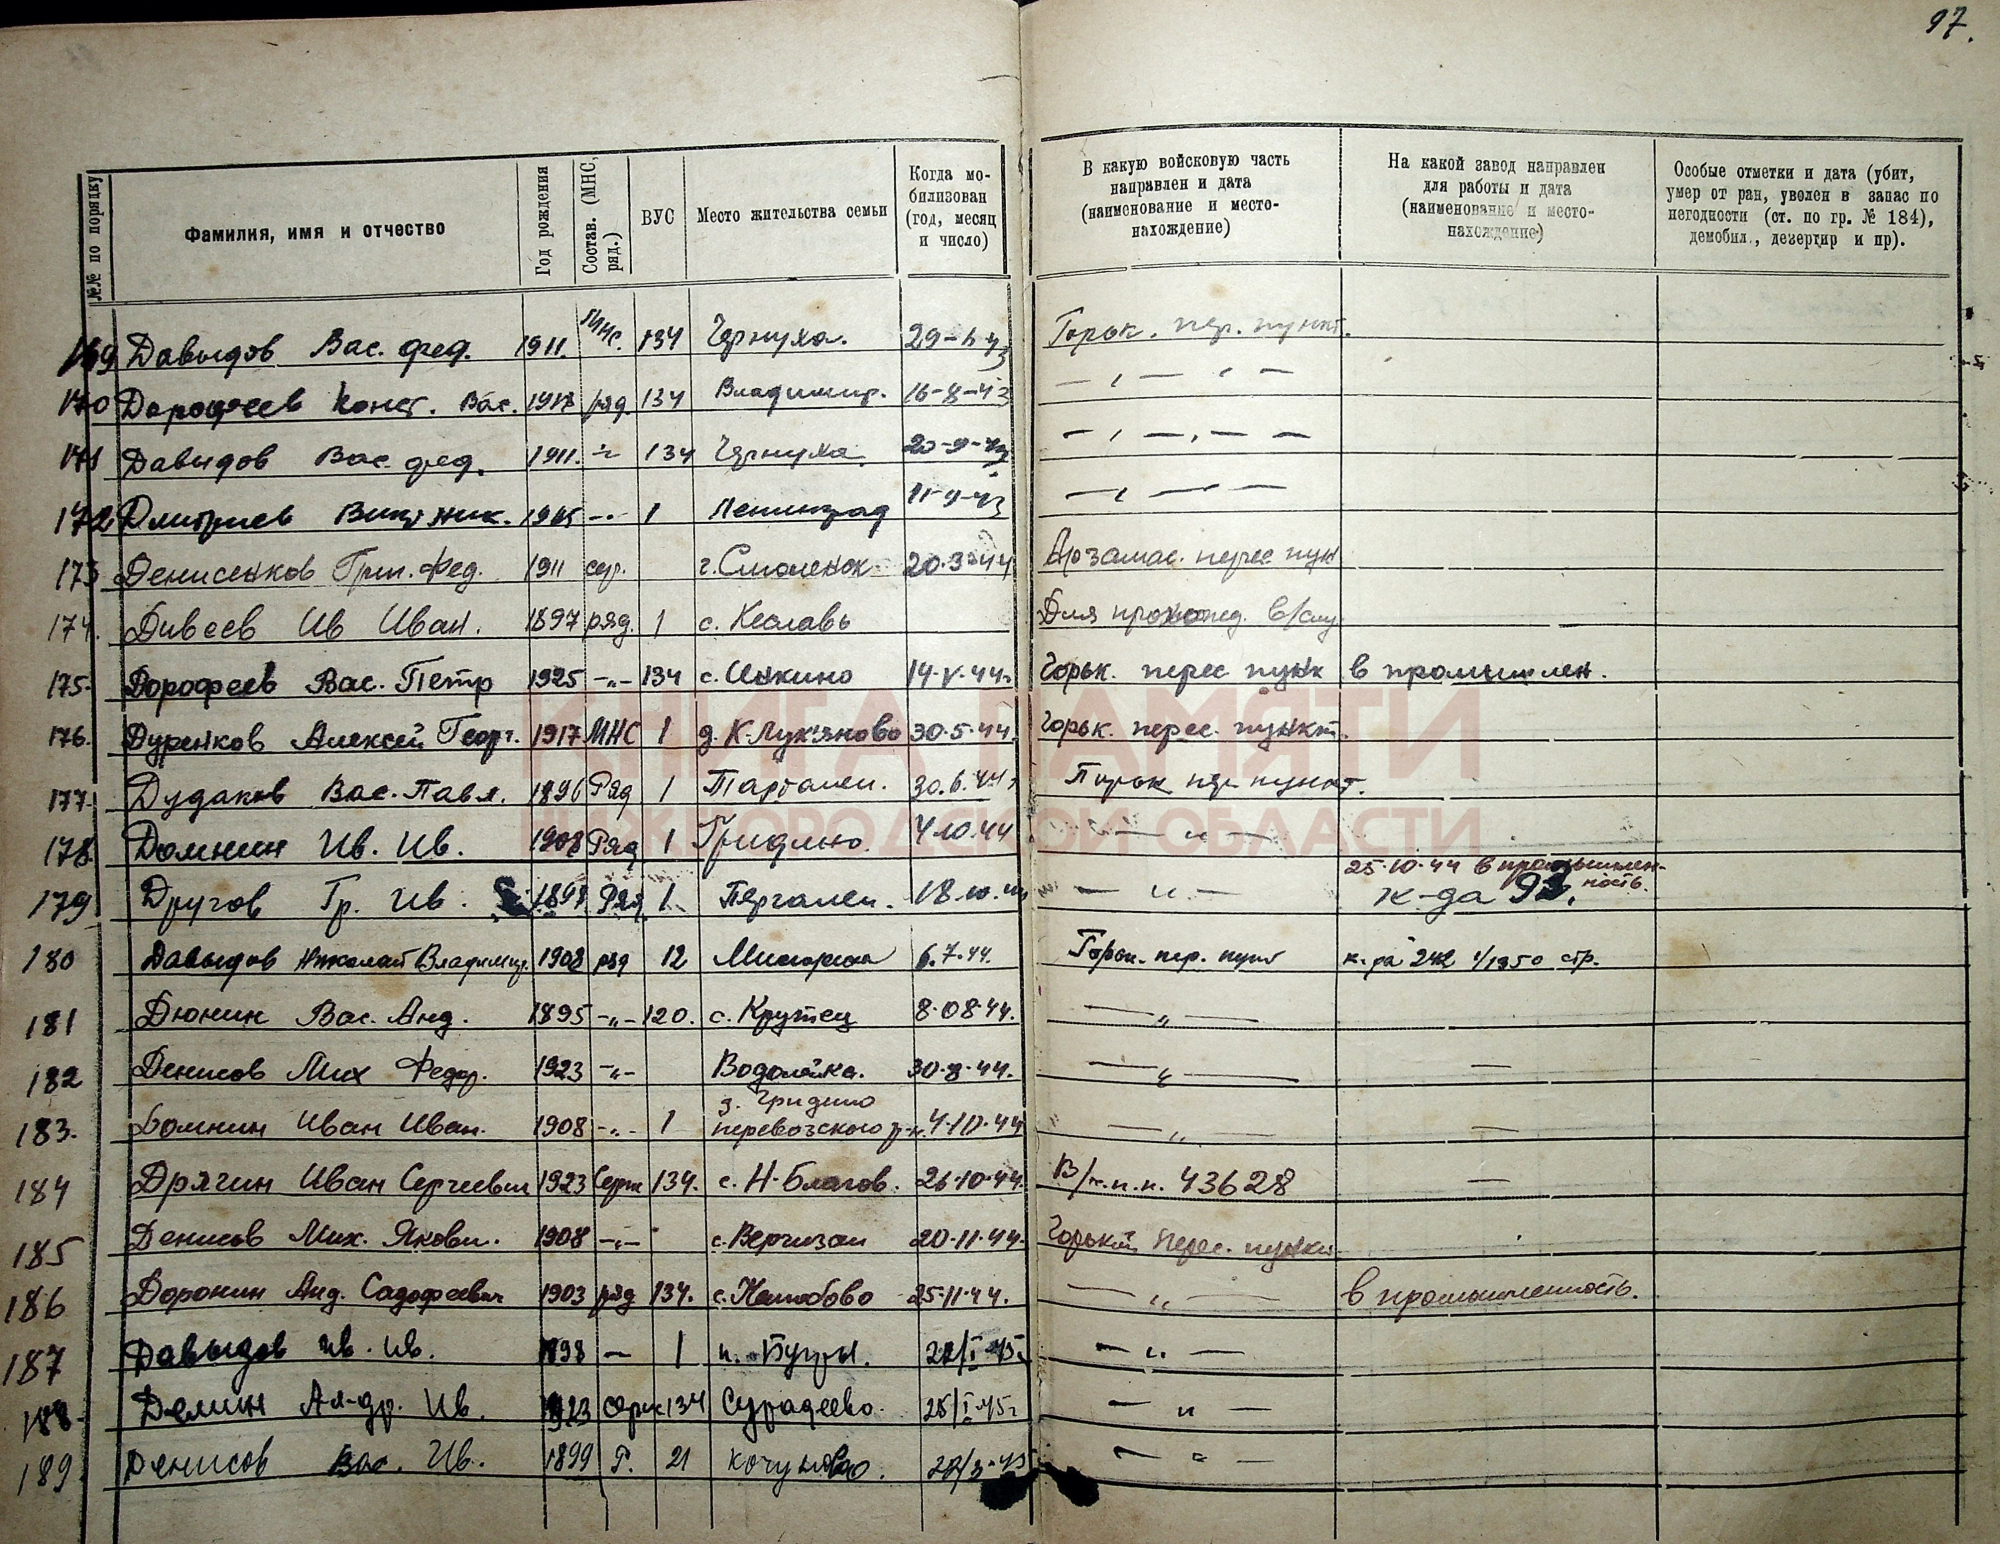 97.
№№ по порядку
Фамилия, имя и отчество
Год рождения
Состав. (МНС, ряд.)
ВУС
Место жительства семьи
Когда мобилизован (год, месяц и число)
В какую войсковую часть направлен и дата (наименование и местонахождение)
На какой завод направлен для работы и дата (наименование и местонахождение)
Особые отметки и дата (убит, умер от ран, уволен в запас по негодности (ст. по гр. № 184), демобил., дезертир и пр).
169 Давыдов Вас. фед. 1911. мнс. 134 Чернуха. Горьк. пер. пункт.
170 Дорофеев Конст. Вас. ряд. 134 Владимир. 16-8-43 — „ — „ —
171 Давыдов Вас. фед. 1911. -"- 134 Чернуха. 20-9-43 — „ — „ — —
172 Дмитриев Вик. Ник. -"- 1 Ленинград 11-9-43 — „ — „ —
173 Денисенков Григ. Фед. 1911 сер. г. Смоленск 20.3.44 Арзамас. перес пун
174. Дивеев Ив Иван. 1897 ряд. 1 с. Кеславь Для прохожд. в/слу
175. Дорофеев Вас. Петр 1925 -"- 134 с. Ичкино 14.V.44г. Горьк. перес пунк в промышлен.
176. Дуренков Алексей Георг. 1917 МНС 1 д. К. Лукьяново 30.5.44. Горьк. перес. пункт.
177. Дудаков Вас. Павл. 1896 Ряд 1 30.6.44г Горьк пер пункт.
178. Домнин Ив. Ив. 1908 Ряд 1 Гридино. 4.10.44 — " —
179 Другов Гр. Ив. Ряд. 1 18.10. — " — 25.10.44 в промышленность. к-да 93.
180 Давыдов Николай Владимир. 1908 ряд 12 6.7.44. Горьк. пер. пунк
181 Дюнин Вас. Анд. 1895 -"- 120. с. Крутец 8.08.44. — " —
182 Денисов Мих Федор. 1923 -"- Водолейка. 30.8.44. — " — —
183. Домнин Иван Иван. 1908 -"- 1 д. Гридино перевозского р-н. 4.10.44 — " — —
184 Дрягин Иван Сергеевич 1923 Серж 134. с. Н-Благов. 26.10.44. В/ч.п.п. 43628 —
185 Денисов Мих. Яковл. 1908 -"- с. Вергизаи 20.11.44. Горький перес. пункт
186 Доронин Анд. Садофеевич 1903 ряд 134. 25.11.44. — " — в промышленность.
187 Давыдов Ив. Ив. 1898 — 1 п. Бугры. — " —
188 Демин Ал-др. Ив. 1923 серж 134 Сурадеево. 25/I 45г — " —
189 Денисов Вас. Ив. 1899 Р. 21 — " —
КНИГА ПАМЯТИ
НИЖЕГОРОДСКОЙ ОБЛАСТИ